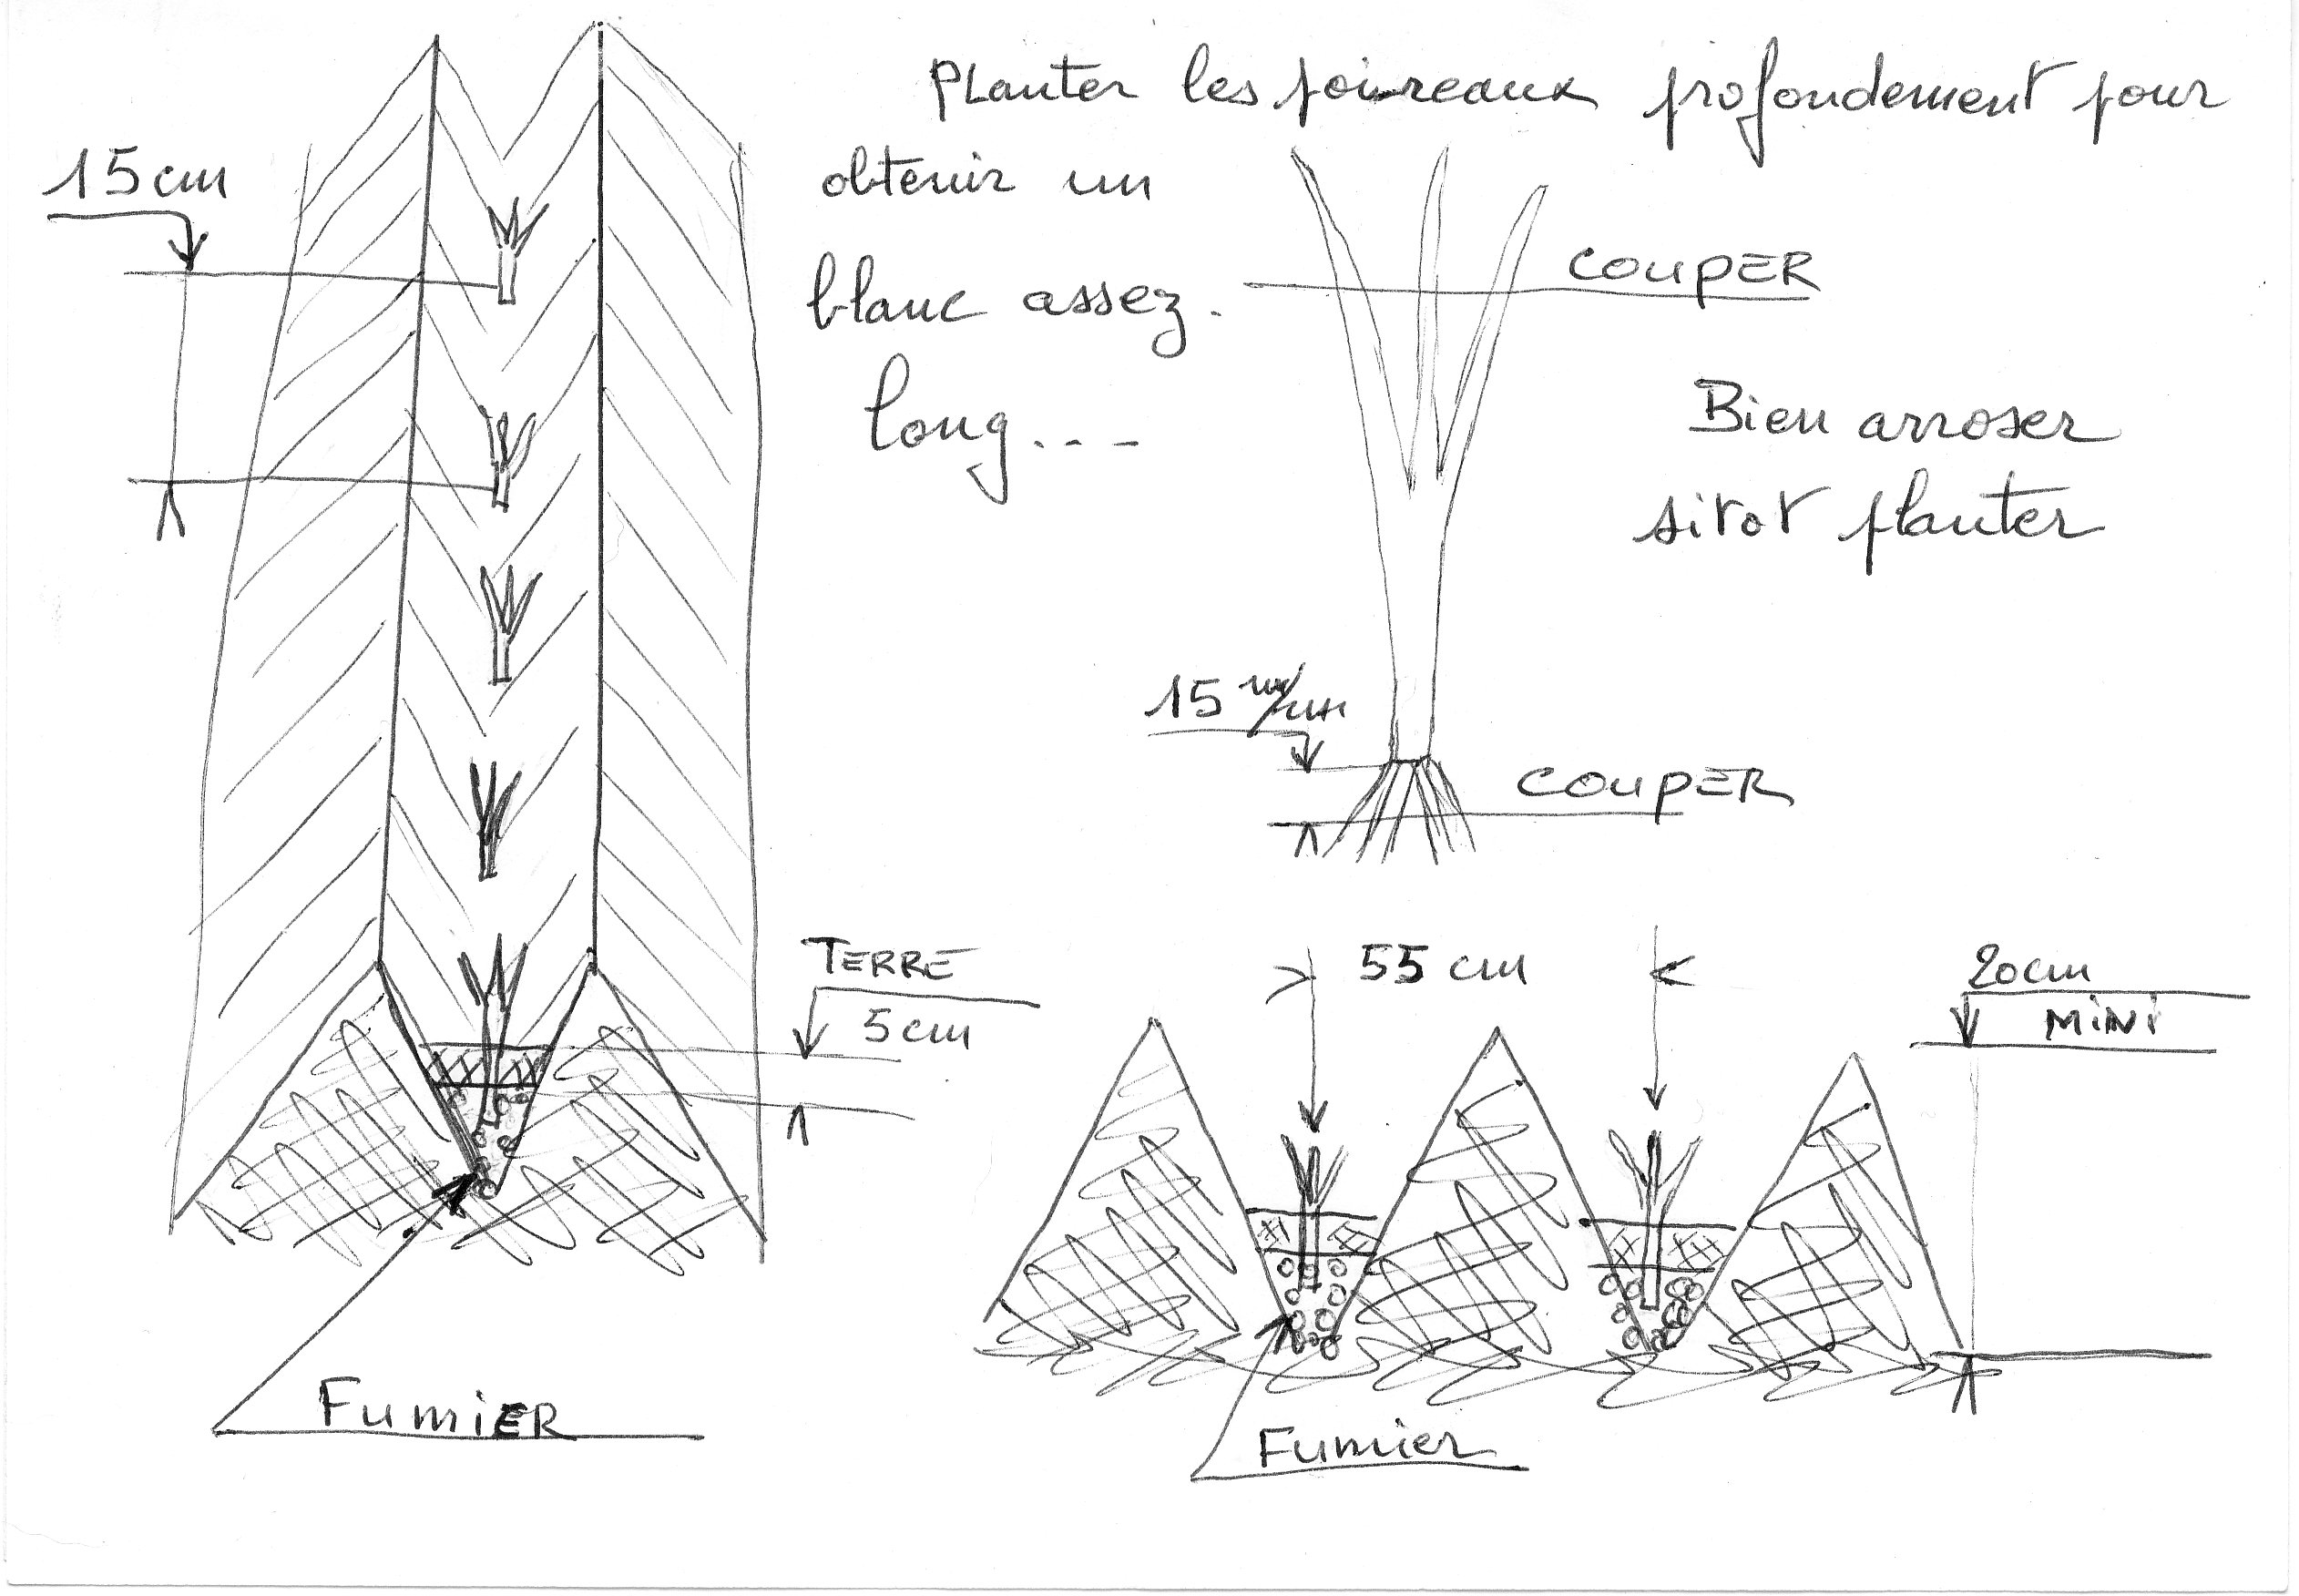 Planter les poireaux profondement pour
obtenir un
blanc assez.
long...
15cm
COUPER
Bien arroser
sitot planter
15 m/m
COUPER
TERRE
5cm
55 cm
20cm
MiNi
FumiER
Fumier